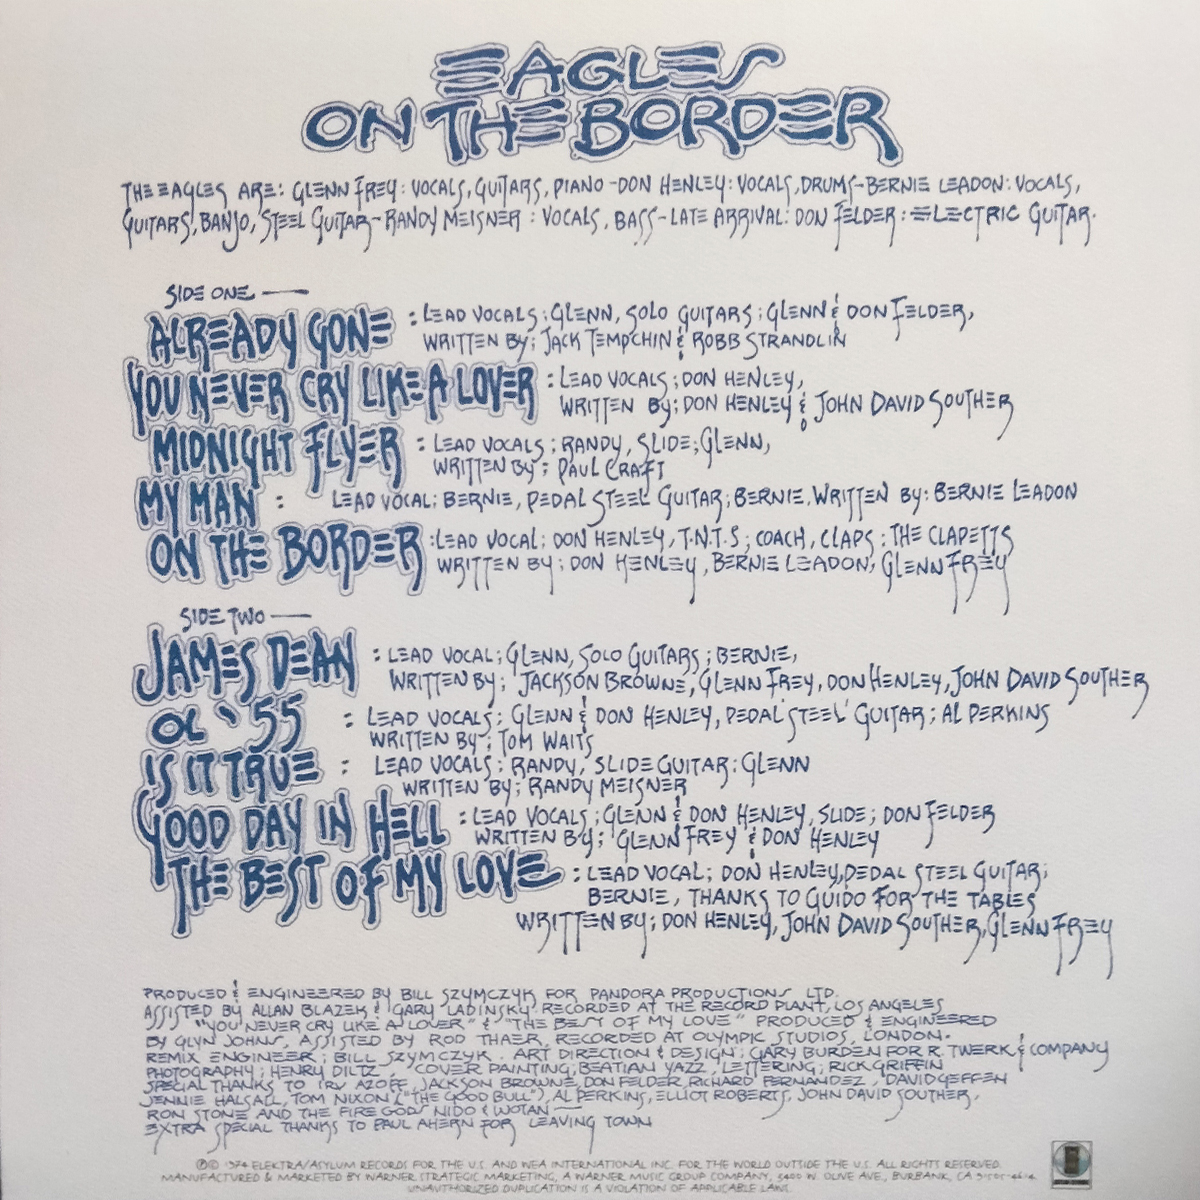 EAGLES
ON THE BORDER
THE EAGLES ARE: GLENN FREY: VOCALS, GUITARS, PIANO - DON HENLEY: VOCALS, DRUMS - BERNIE LEADON: VOCALS,
GUITARS, BANJO, STEEL GUITAR - RANDY MEISNER: VOCALS, BASS - LATE ARRIVAL: DON FELDER: ELECTRIC GUITAR.
SIDE ONE —
ALREADY GONE : LEAD VOCALS; GLENN, SOLO GUITARS; GLENN & DON FELDER,
WRITTEN BY; JACK TEMPCHIN & ROBB STRANDLIN
YOU NEVER CRY LIKE A LOVER : LEAD VOCALS; DON HENLEY,
WRITTEN BY; DON HENLEY & JOHN DAVID SOUTHER
MIDNIGHT FLYER : LEAD VOCALS; RANDY, SLIDE; GLENN,
WRITTEN BY; PAUL CRAFT
MY MAN : LEAD VOCAL; BERNIE, PEDAL STEEL GUITAR; BERNIE. WRITTEN BY: BERNIE LEADON
ON THE BORDER : LEAD VOCAL; DON HENLEY, T.N.T.S; COACH, CLAPS; THE CLAPETTS
WRITTEN BY; DON HENLEY, BERNIE LEADON, GLENN FREY
SIDE TWO —
JAMES DEAN : LEAD VOCAL; GLENN, SOLO GUITARS; BERNIE,
WRITTEN BY; JACKSON BROWNE, GLENN FREY, DON HENLEY, JOHN DAVID SOUTHER
OL '55 : LEAD VOCALS; GLENN & DON HENLEY, PEDAL STEEL GUITAR; AL PERKINS
WRITTEN BY; TOM WAITS
IS IT TRUE : LEAD VOCALS; RANDY, SLIDE GUITAR; GLENN
WRITTEN BY; RANDY MEISNER
GOOD DAY IN HELL : LEAD VOCALS; GLENN & DON HENLEY, SLIDE; DON FELDER
WRITTEN BY; GLENN FREY & DON HENLEY
THE BEST OF MY LOVE : LEAD VOCAL; DON HENLEY, PEDAL STEEL GUITAR;
BERNIE, THANKS TO GUIDO FOR THE TABLES
WRITTEN BY; DON HENLEY, JOHN DAVID SOUTHER, GLENN FREY
PRODUCED & ENGINEERED BY BILL SZYMCZYK FOR PANDORA PRODUCTIONS LTD.
ASSISTED BY ALLAN BLAZEK & GARY LADINSKY. RECORDED AT THE RECORD PLANT, LOS ANGELES
"YOU NEVER CRY LIKE A LOVER" & "THE BEST OF MY LOVE" PRODUCED & ENGINEERED
BY GLYN JOHNS, ASSISTED BY ROD THAER, RECORDED AT OLYMPIC STUDIOS, LONDON.
REMIX ENGINEER; BILL SZYMCZYK. ART DIRECTION & DESIGN; GARY BURDEN FOR R. TWERK & COMPANY
PHOTOGRAPHY; HENRY DILTZ, COVER PAINTING; BEATIAN YAZZ, LETTERING; RICK GRIFFIN
SPECIAL THANKS TO IRV AZOFF, JACKSON BROWNE, DON FELDER, RICHARD FERNANDEZ, DAVID GEFFEN
JENNIE HALSALL, TOM NIXON ("THE GOOD BULL"), AL PERKINS, ELLIOT ROBERTS, JOHN DAVID SOUTHER,
RON STONE AND THE FIRE GODS NIDO & WOTAN —
EXTRA SPECIAL THANKS TO PAUL AHERN FOR LEAVING TOWN
℗© 1974 ELEKTRA/ASYLUM RECORDS FOR THE U.S. AND WEA INTERNATIONAL INC. FOR THE WORLD OUTSIDE THE U.S. ALL RIGHTS RESERVED.
MANUFACTURED & MARKETED BY WARNER STRATEGIC MARKETING, A WARNER MUSIC GROUP COMPANY, 3400 W. OLIVE AVE., BURBANK, CA
UNAUTHORIZED DUPLICATION IS A VIOLATION OF APPLICABLE LAWS.